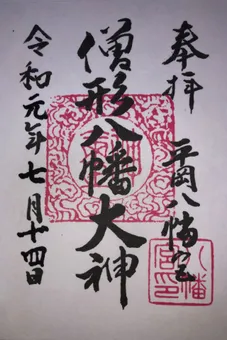 奉拝
平岡八幡宮
僧形八幡大神
令和元年七月十四日